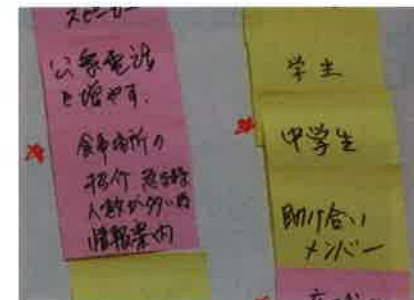 スピーカー
公衆電話
を増やす.
食事場所の
紹介
人数が多い時
情報案内
学生
中学生
助け合い
メンバー